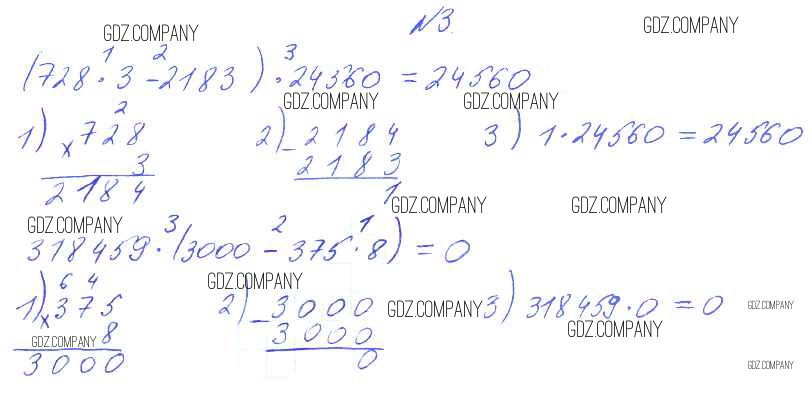 №3.
GDZ.COMPANY GDZ.COMPANY
1 2 3
(728·3-2183)·24560=24560
GDZ.COMPANY GDZ.COMPANY
2
1) ×728 2) -2184 3) 1·24560=24560
3 2183
2184 1
GDZ.COMPANY GDZ.COMPANY GDZ.COMPANY
3 2 1
318459·(3000-375·8)=0
GDZ.COMPANY
6 4
1) ×375 2) -3000 GDZ.COMPANY 3) 318459·0=0 GDZ.COMPANY
GDZ.COMPANY 8 3000 GDZ.COMPANY
3000 0 GDZ.COMPANY